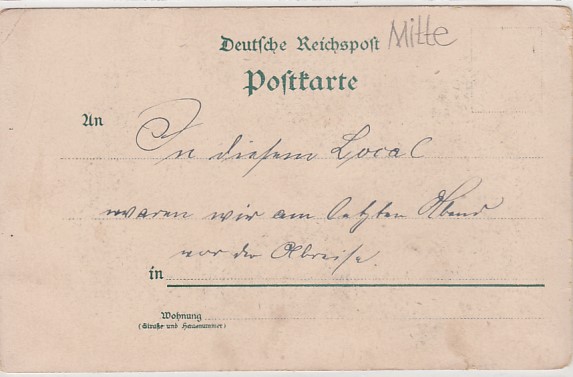 Deutsche Reichspost Mitte
Postkarte
An
In diesem Local
waren wir am letzten Abend
vor der Abreise.
in
Wohnung
(Straße und Hausnummer)